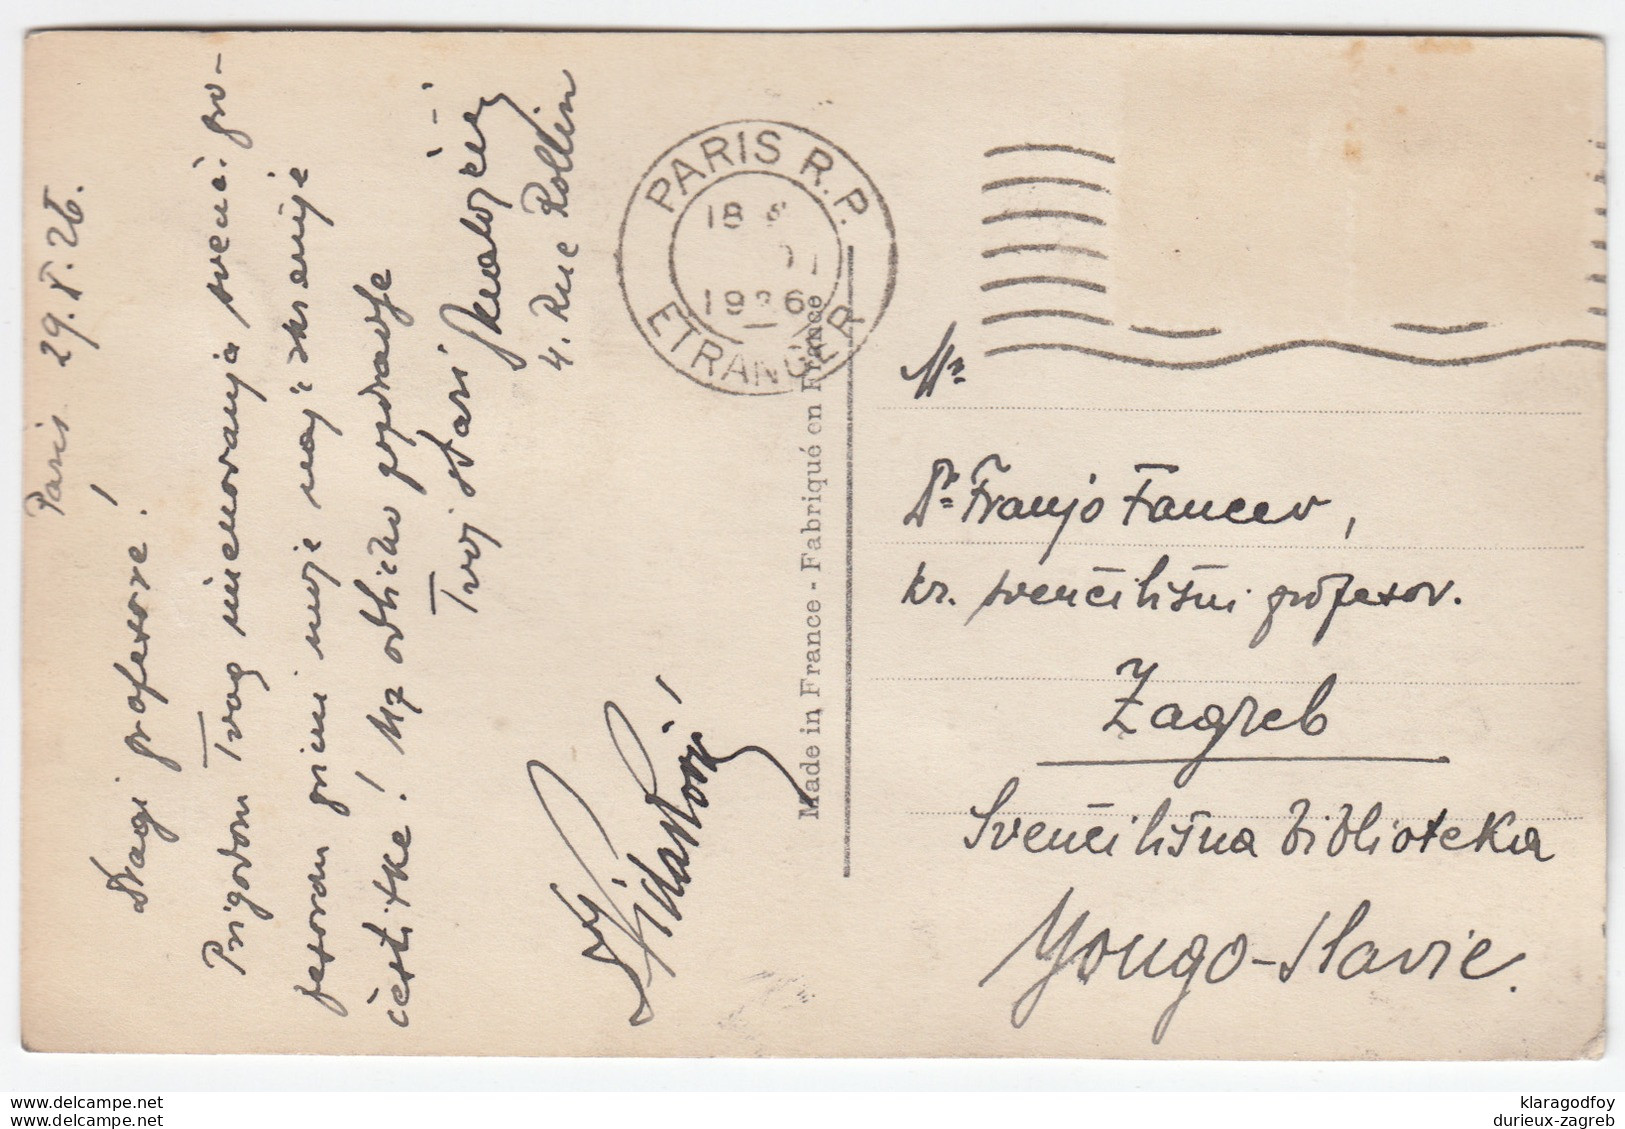 Paris 29.X.26.
Dragi profesore!
Prigodom Tvog imenovanja sveuč. pro-
fesorom primi moje najiskrenije
čestitke! Uz odlično pozdravlje
Tvoj stari
4. Rue Rollin
PARIS R.P.
18
1926
ETRANGER
Made in France - Fabriqué en France
Mr
Dr Franjo Fancev,
kr. sveučilišni profesor.
Zagreb
Sveučilišna biblioteka
Yougo-Slavie.
delcampe.net
klaragodfoy
The Collector's Marketplace
durieux-zagreb